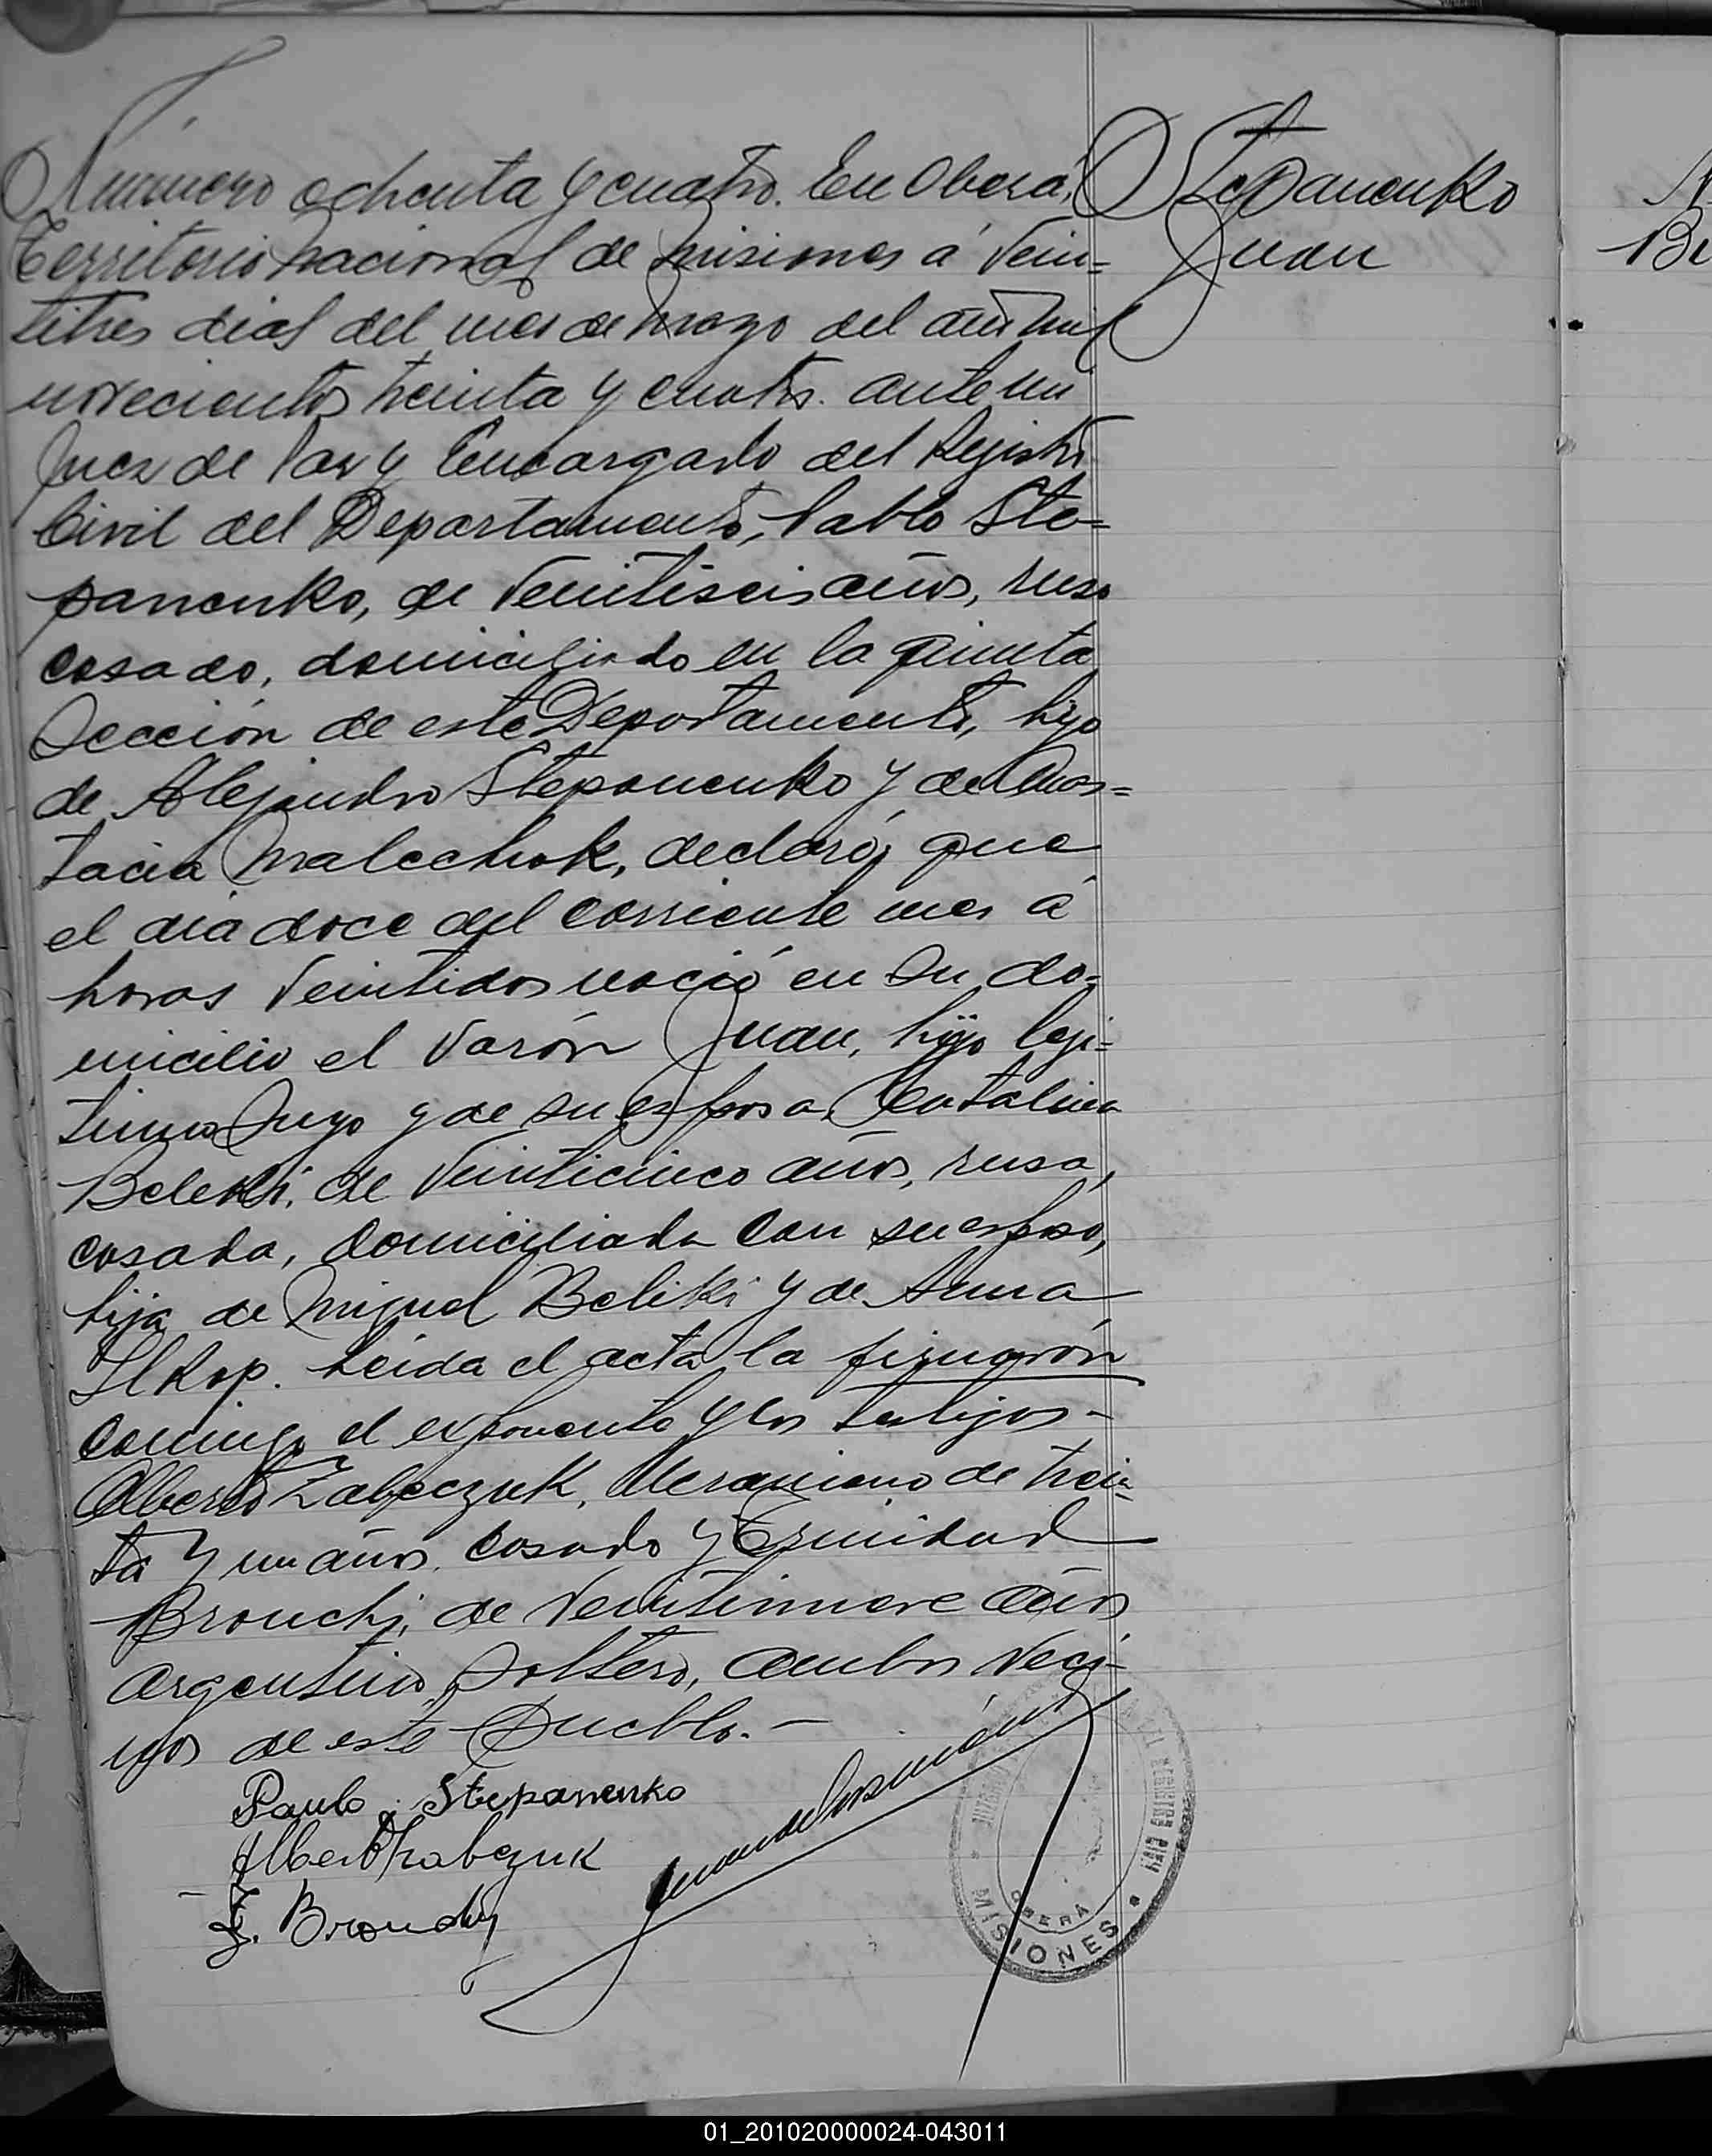 Número ochenta y cuatro. En Oberá,
Stepanenko
Juan
Territorio nacional de Misiones á vein=
titres dias del mes de mayo del año mil
novecientos treinta y cuatro. ante mi
Juez de Paz y Encargado del Registro
Civil del Departamento, Pablo Ste=
panenko, de veintiseis años, ruso
casado, domiciliado en la quinta
Sección de este Departamento, hijo
de Alejandro Stepanenko y de Anas=
tacia Malechok, declaró, que
el dia doce del corriente mes á
horas veintidos nació en su do=
micilio el varón Juan, hijo legi=
timo suyo y de su esposa Catalina
Beleki, de veinticinco años, rusa,
casada, domiciliada con su esposo,
hija de Miguel Beliki y de Anna
Ilkop. Leida el acta la firmarón
conmigo el exponente y los testigos-
Alberto Zabeczuk, Ucraniano de trein-
ta y un años. casado y Trinidad
Bronchi, de veintinueve años
argentino, soltero, ambos veci-
nos de este Pueblo.-
Paulo Stepanenko
Albert Trabczuk
T. Bronchi
REGISTRO CIVIL
OBERA
MISIONES
N
Be
01_201020000024-043011